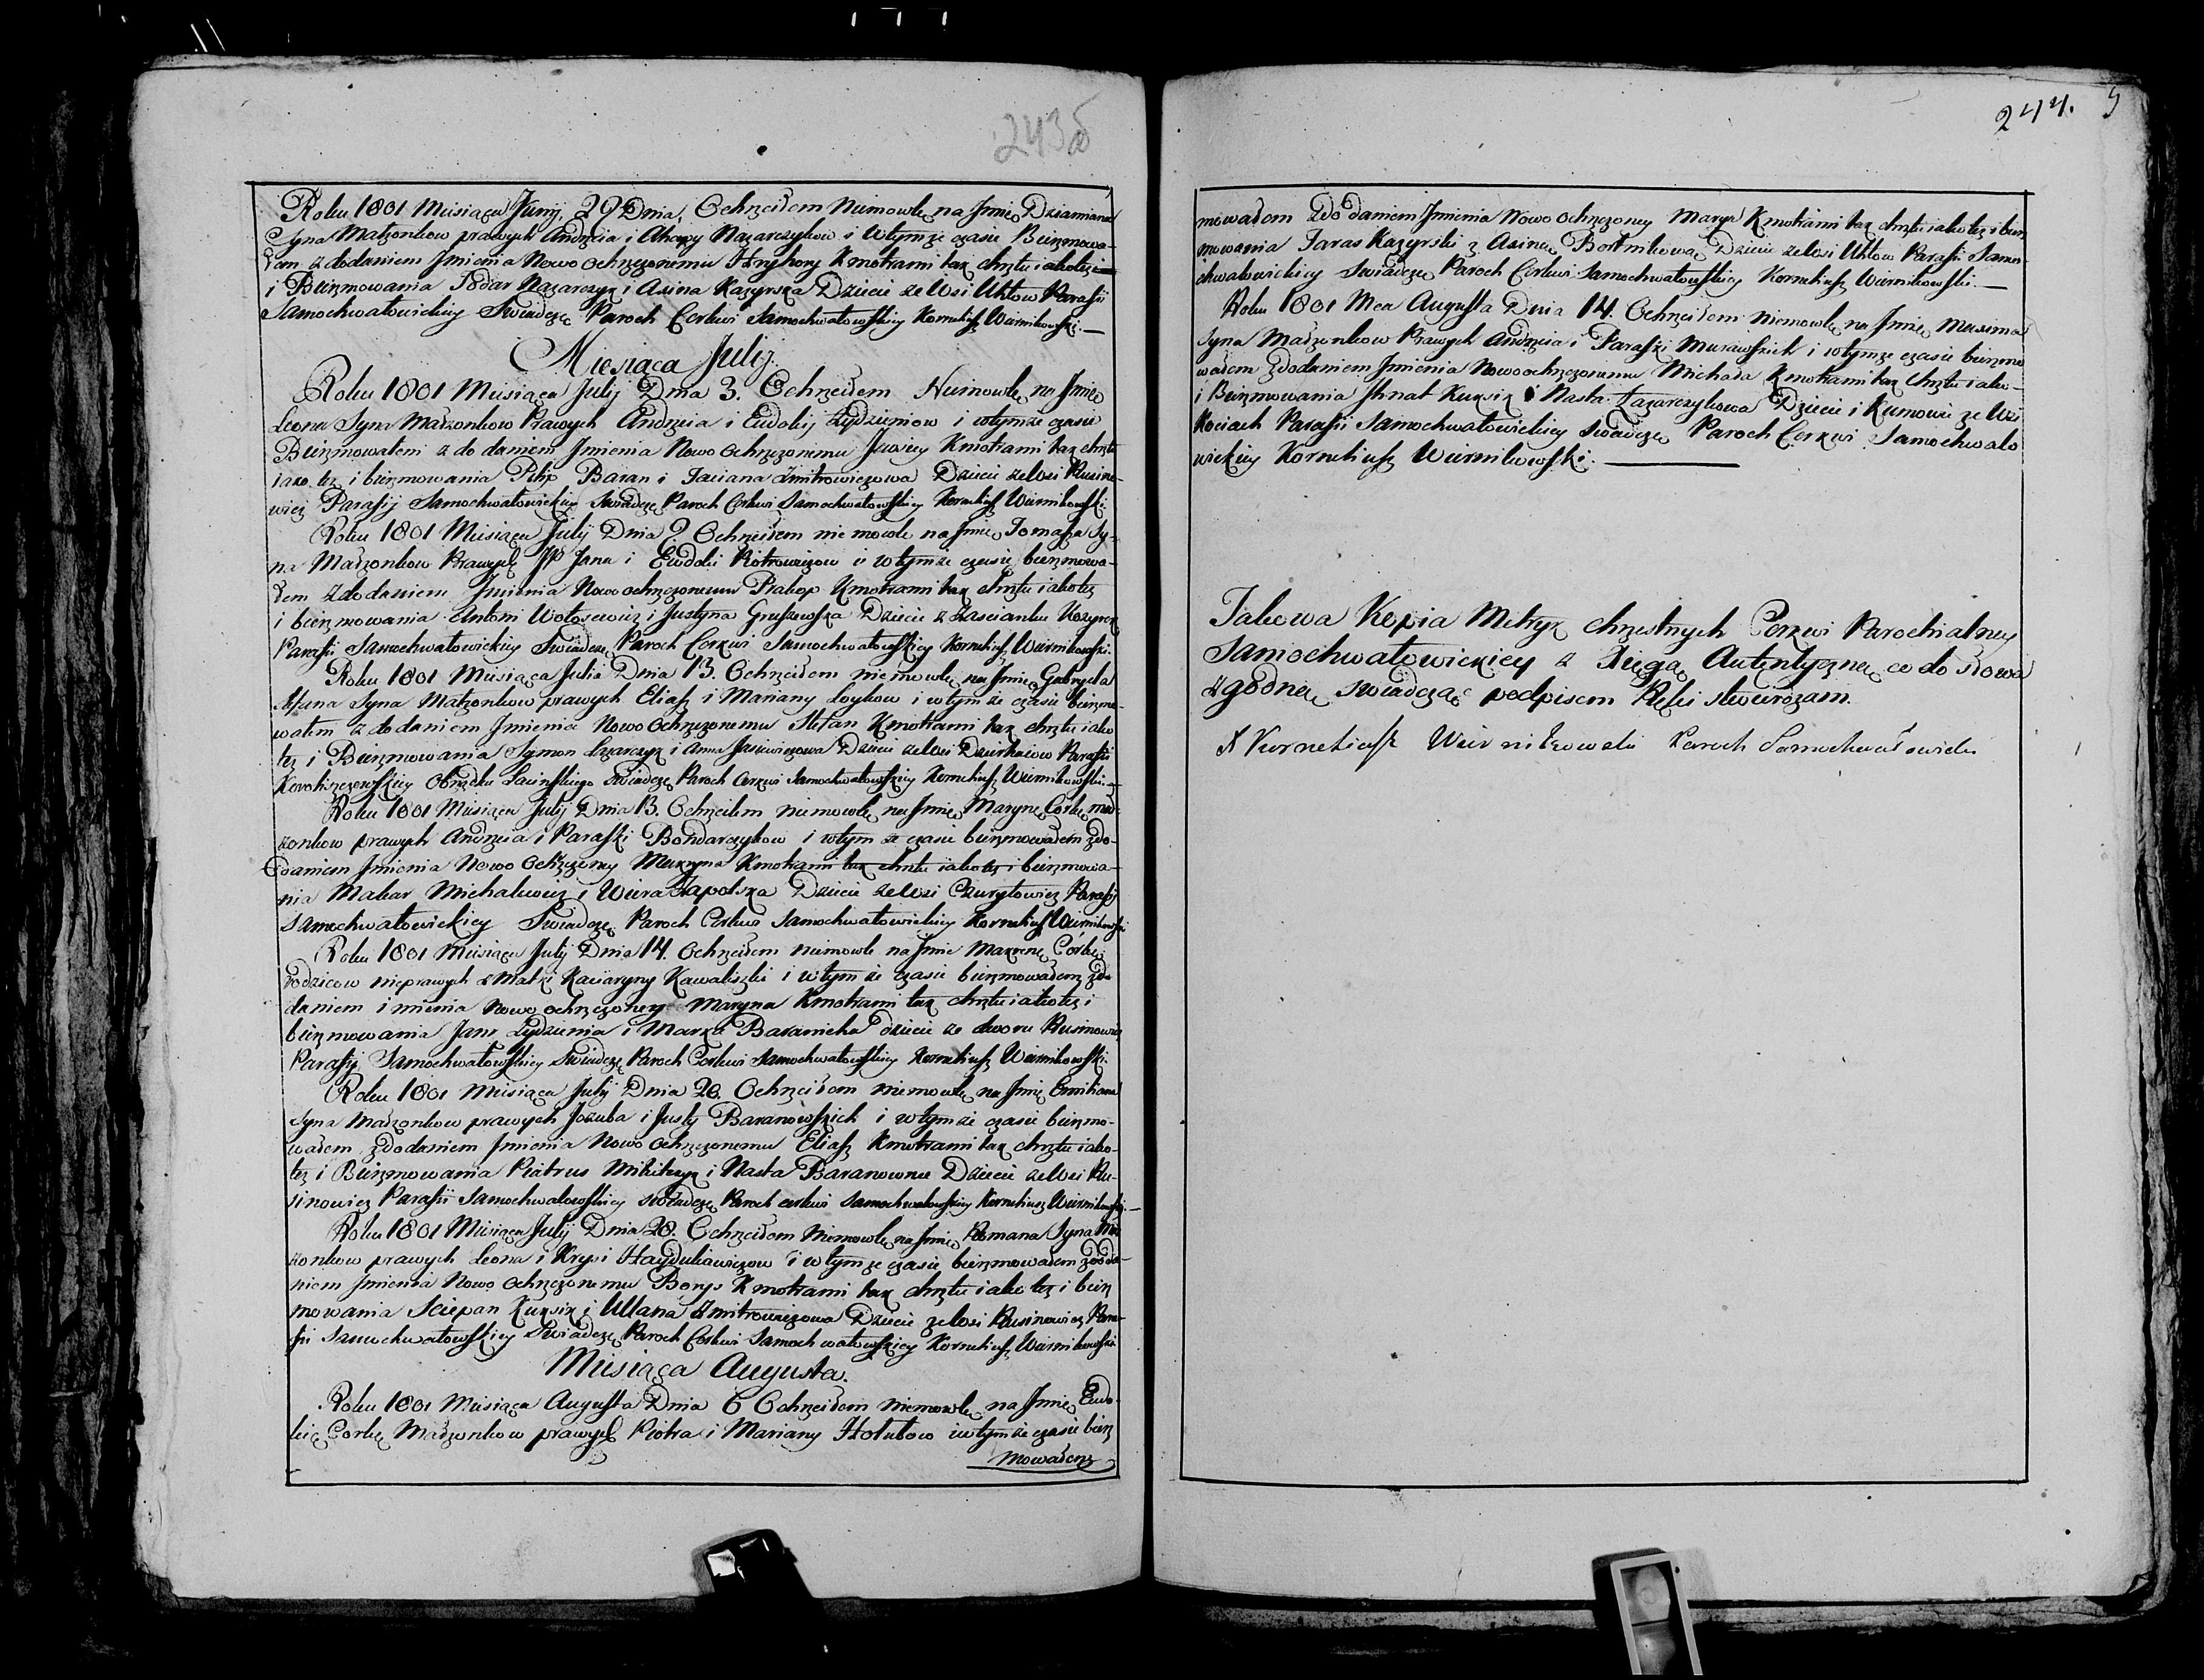 243 об
Roku 1801 Miesiąca Junij, 29 Dnia, Ochrzciłem Niemowle na Jmie Dziamiana
Syna Małżonkow prawych Andrzeia i Ahapy Nazarczykow i wtymże czasie Bierzmowa-
łem z dodaniem Jmienia Nowo ochrzczonemu Hryhory Kmotrami tak chrztu iakotez
i Bierzmowania Todar Nazarczyk i Asina Kazyrska Dziecie ze Wsi Ukłow Parafii
Samochwałowickiey Swiadczę Paroch Cerkwi Samochwałowskiey Korneliusz Wiernikowski.—
Miesiąca Julij.
Roku 1801 Miesiąca Julij Dnia 3. Ochrzciłem Niemowle na Jmie
Leona Syna Małżonkow Prawych Andrzeia i Eudokij Łydzieniow i wtymże czasie
Bierzmowałem z do daniem Jmienia Nowo ochrzczonemu Kmotrami tak chrztu
iako tez i bierzmowania Pilip Baran i Taciana Zmitrowiczowa Dziecie ze Wsi Rusino-
wicz Parafij Samochwałowickiey Swiadczę Paroch Cerkwi Samochwałowskiey Korneliusz Wiernikowski.
Roku 1801 Miesiąca July Dnia 9. Ochrzciłem niemowle na Jmie Tomasza Sy-
na Małżonkow Prawych JP Jana i Ewdoki Piotrowiczow i wtymże czasie bierzmowa-
łem z do daniem Jmienia Nowo ochrzczonemu Prakop Kmotrami tak chrztu iakotez
i bierzmowania Antoni Wołosewicz i Justyna Gruszewska Dziecie z Zascianku Kozyrek
Parafii Samochwałowickiey Swiadczę Paroch Cerkwi Samochwałowskiey Korneliusz Wiernikowski.
Roku 1801 Miesiąca Julia Dnia 13. Ochrzciłem niemowle na Jmie Gabryela
Syna Małżonkow prawych Eliasz i Mariany Łoykow i wtymże czasie bierzmo-
wałem z do daniem Jmienia Nowo Ochrzczonemu Stefan Kmotrami tak chrztu iako
tez i Bierzmowania Symon Łazarczyk i Anna Jaskiewiczowa Dziecie ze Wsi Parafii
Obrządku Łacińskiego Swiadczę Paroch Cerkwi Samochwałowskiey Korneliusz Wiernikowski.—
Roku 1801 Miesiąca July Dnia 13. Ochrzciłem niemowle na Jmie Marynę Corkę mał-
żonkow prawych Andrzeia i Paraski Bondarczykow i wtym ze czasie bierzmowałem zdo-
daniem Jmienia Nowo Ochrzczoney Maryna Kmotrami tak chrztu iakotez i bierzmowa-
nia Makar Michalewicz i Wiera Tapolska Dziecie ze Wsi Czuryłowicz Parafij
Samochwałowickiey Swiadczę Paroch Cerkwi Samochwałowickiey Korneliusz Wiernikowski
Roku 1801 Miesiąca July Dnia 14. Ochrzciłem niemowle na Jmie Makrenę Córkę
Rodzicow nieprawych z Matki Kaciaryny Kawaliszki i wtym ze czasie bierzmowałem zdo
daniem imienia Nowo ochrzczoney Maryna Kmotrami tak chrztu iakotez i
bierzmowania Jane Łydzienia i Marka Baranicha Dziecie ze dworu Rusinowicz
Parafij Samochwałowskiey Swiadczę Paroch Cerkwi Samochwałowskiey Korneliusz Wiernikowski.
Roku 1801 Miesiąca July Dnia 20. Ochrzciłem niemowle na Jmie Emiliana
Syna Małżonkow prawych Jozuba i Justy Baranowskich i wtym ze czasie bierzmo-
wałem zdodaniem Jmienia Nowo ochrzczonemu Eliasz Kmotrami tak chrztu iako-
tez i Bierzmowania Piatrus Mikitczyk i Nasta Baranowna Dziecie ze Wsi Ru-
sinowicz Parafii Samochwałowskiey swiadczę Paroch cerkwi Samochwałowskiey Korneliusz Wiernikowski.—
Roku 1801 Miesiąca July Dnia 28. Ochrzciłem Niemowle na Jmie Romana Syna Mał
żonkow prawych Leona i Krysi Haydukiewiczow i wtym ze czasie bierzmowałem zdoda-
niem Jmienia Nowo ochrzczonemu Borys Kmotrami tak chrztu iako tez i bierz
mowania Sciepan Kuksik i Ullana Zmitrowiczowa Dziecie ze Wsi Rusinowicz Para-
fii Samochwałowskiey Swiadczę Paroch Cerkwi Samochwałowskiey Korneliusz Wiernikowski
Miesiąca Augusta.
Roku 1801 Miesiąca Augusta Dnia 6 Ochrzciłem niemowle na Jmie Eudo-
kię Corkę Małżonkow prawych Piotra i Mariany Hołubow iwtymże czasie bierz
mowałem
244. 5
mowałem Zdo daniem Jmienia Nowo ochrzczoney Marya Kmotrami tak chrztu iako tez i bierz
mowania Taras Kazyrski z Asineą Bortnikową Dziecie ze Wsi Ukłow Parafii Samo-
chwałowickiey Swiadczę Paroch Cerkwi Samochwałowskiey Korneliusz Wiernikowski.—
Roku 1801 Mca Augusta Dnia 14. Ochrzciłem niemowle na Jmie Maxima
Syna Małżonkow Prawych Andrzeia i Paraski Murawskich i wtymze czasie bierzmo
wałem zdodaniem Jmienia Nowoochrzczonemu Michała Kmotrami tak Chrztu iako-
i Bierzmowania Jhnat Kuksik i Nasta Łazarczykowa Dziecie i Kumowie ze Wsi
Kociach Parafii Samochwałowickiey swiadczę Paroch Cerkwi Samochwało
wickiey Korneliusz Wiernikowski.—
Takowa Kopia Metryk chrzestnych Cerkwi Parochialney
Samochwałowickiey z Xięgą Autentyczną co do słowa
zgodną swiadcząc podpisem Ręki stwierdzam.
X Korneliusz Wiernikowski Paroch Samochwałowicki